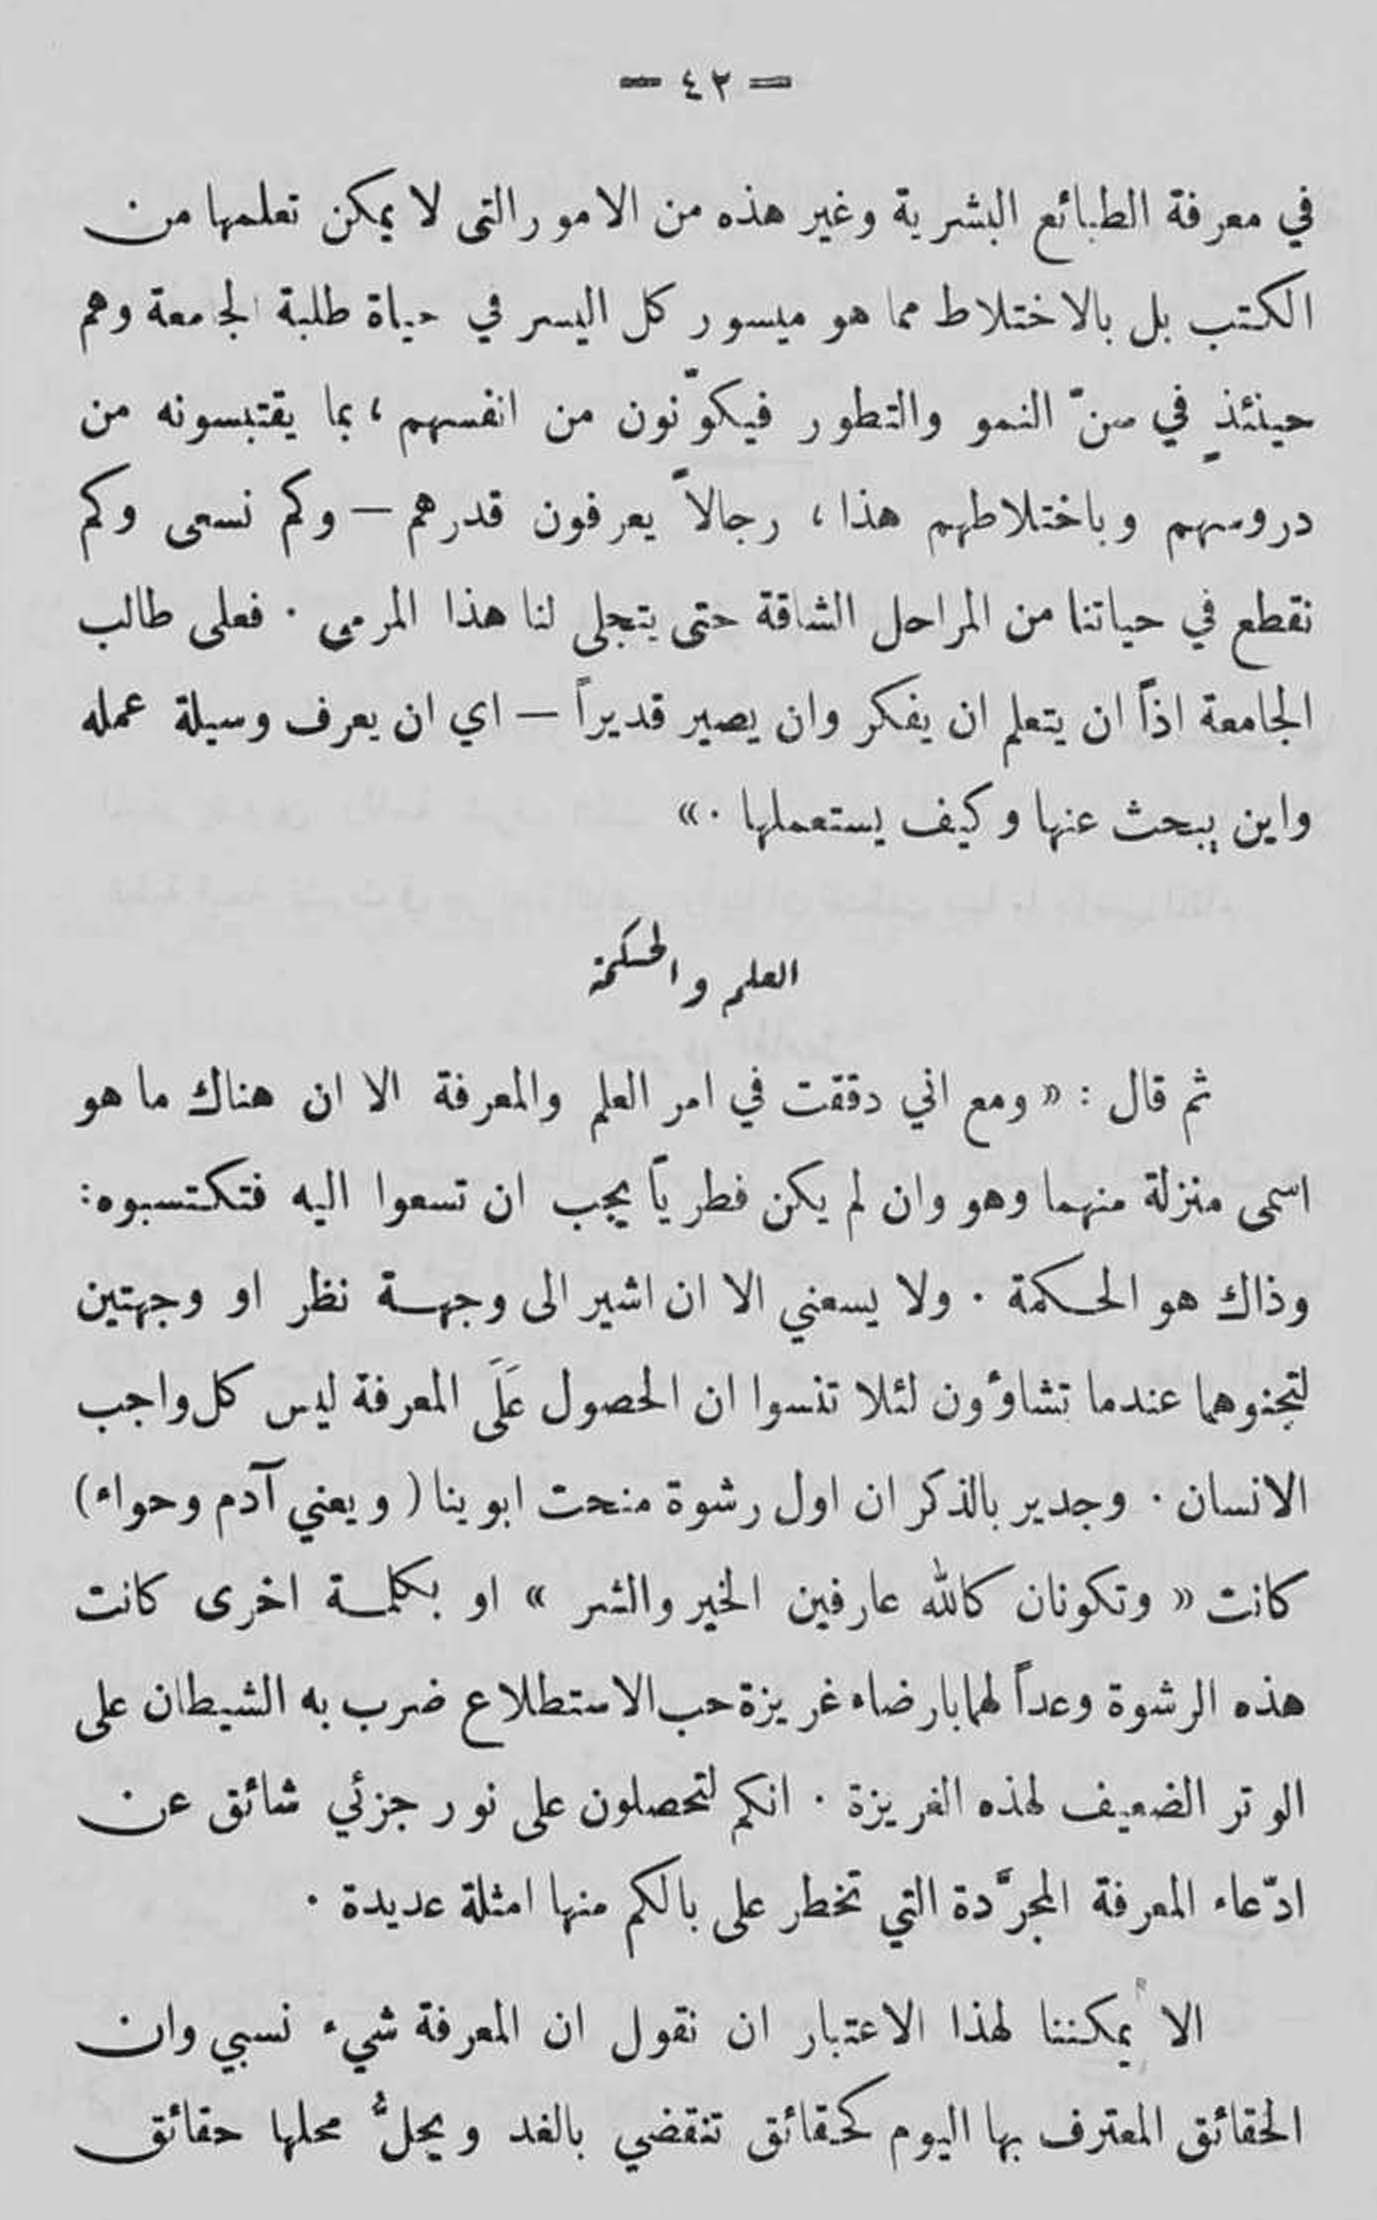 — ٤٢ —
في معرفة الطبائع البشرية وغير هذه من الامور التى لا يمكن تعلمها من
الكتب بل بالاختلاط مما هو ميسور كل اليسر في حياة طلبة الجامعة وهم
حينئذٍ في سنّ النمو والتطور فيكوّنون من انفسهم ، بما يقتبسونه من
دروسهم وباختلاطهم هذا ، رجالاً يعرفون قدرهم — وكم نسعى وكم
نقطع في حياتنا من المراحل الشاقة حتى يتجلى لنا هذا المرمى . فعلى طالب
الجامعة اذاً ان يتعلم ان يفكر وان يصير قديراً — اي ان يعرف وسيلة عمله
واين يبحث عنها وكيف يستعملها . »
العلم والحكمة
ثم قال : « ومع اني دققت في امر العلم والمعرفة الا ان هناك ما هو
اسمى منزلة منهما وهو وان لم يكن فطرياً يجب ان تسعوا اليه فتكتسبوه :
وذاك هو الحكمة . ولا يسعني الا ان اشير الى وجهة نظر او وجهتين
لتجنوهما عندما تشاؤون لئلا تنسوا ان الحصول عَلَى المعرفة ليس كل واجب
الانسان . وجدير بالذكر ان اول رشوة منحت ابوينا ( ويعني آدم وحواء )
كانت « وتكونان كالله عارفين الخير والشر » او بكلمة اخرى كانت
هذه الرشوة وعداً لهما بارضاء غريزة حب الاستطلاع ضرب به الشيطان على
الوتر الضعيف لهذه الغريزة . انكم لتحصلون على نور جزئي شائق عن
ادّعاء المعرفة المجرَّدة التي تخطر على بالكم منها امثلة عديدة .
الا يمكننا لهذا الاعتبار ان نقول ان المعرفة شيء نسبي وان
الحقائق المعترف بها اليوم كحقائق تنقضي بالغد ويحلُّ محلها حقائق